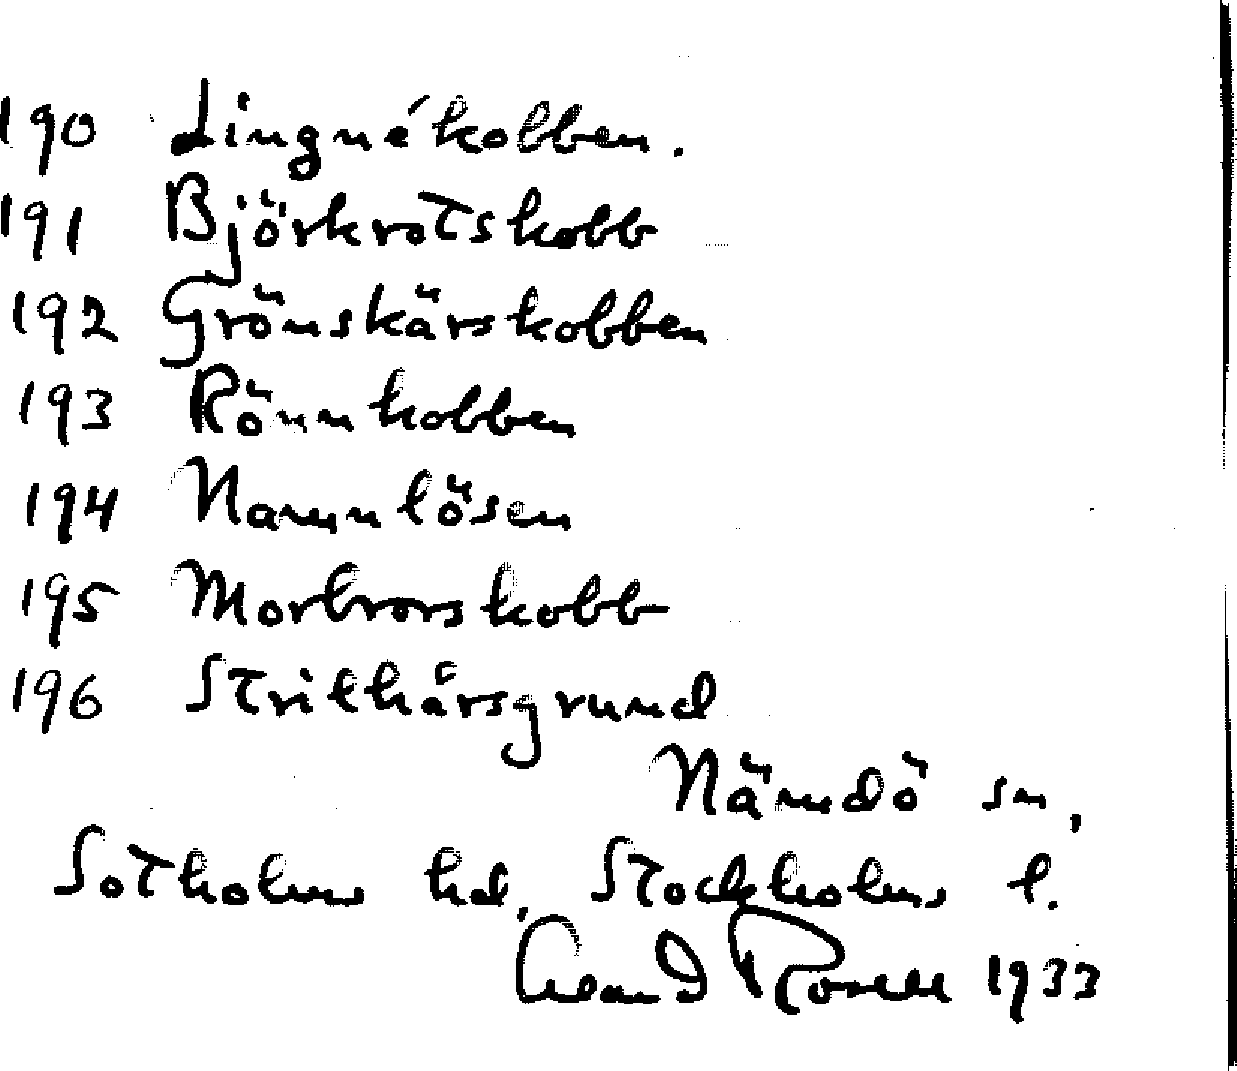 190 Lingnékobben.
191 Björkrotskobb
192 Grönskärskobben
193 Rönnkobben
194 Namnlösen
195 Morbrorskobb
196 Stritkärsgrund
Nämdö sn,
Sotholms hd, Stockholms l.
1933